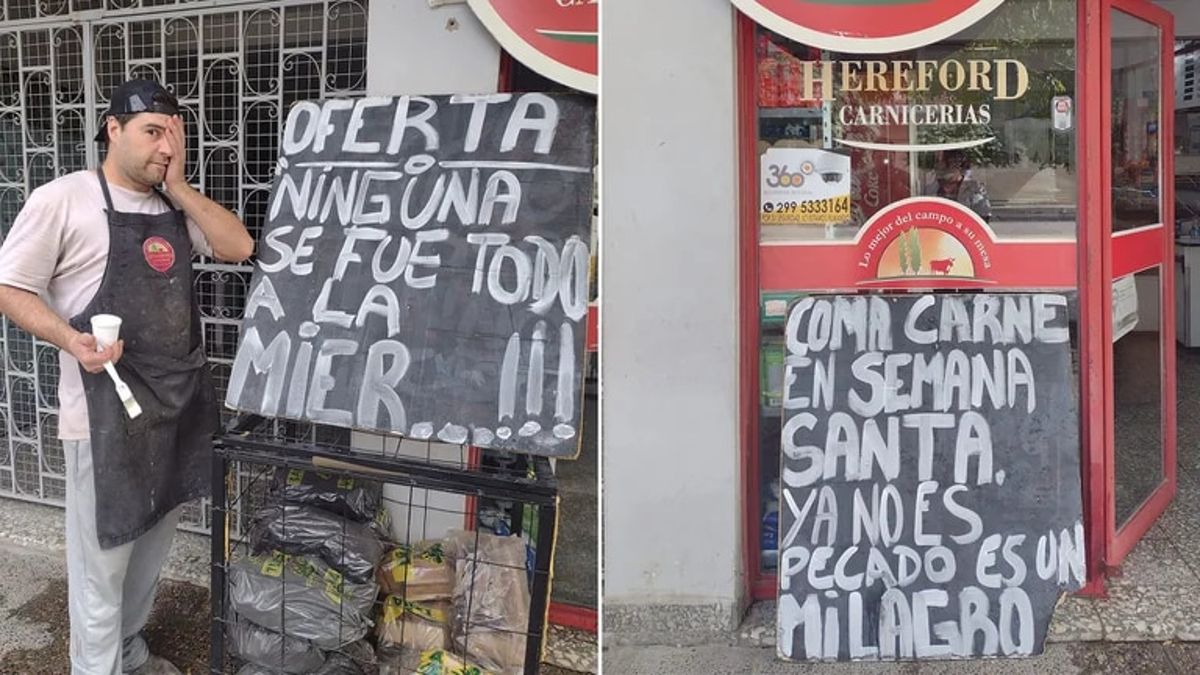 OFERTA
NINGUNA
SE FUE TODO
A LA
MIER....!!!
HEREFORD
CARNICERIAS
360
299 5333164
Lo mejor del campo a su mesa
COMA CARNE
EN SEMANA
SANTA.
YA NO ES
PECADO ES UN
MILAGRO